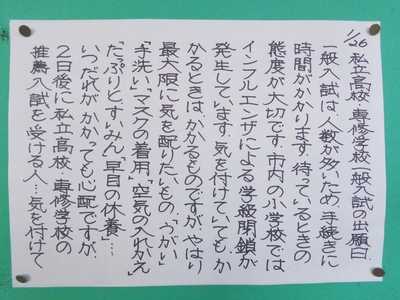 1/26 私立高校・専修学校一般入試の出願日
一般入試は、人数が多いため、手続きに
時間がかかります。待っているときの
態度が大切です。市内の小学校では
インフルエンザによる学級閉鎖が
発生しています。気を付けていても、か
かるときは、かかるものですが、やはり
最大限に気を配りたいもの。「うがい」
「手洗い」「マスクの着用」「空気の入れかえ」
「たっぷりと、すいみん」「早目の休養」…
いつだれがかかっても心配ですが、
2日後に私立高校・専修学校の
推薦入試を受ける人…気を付けて